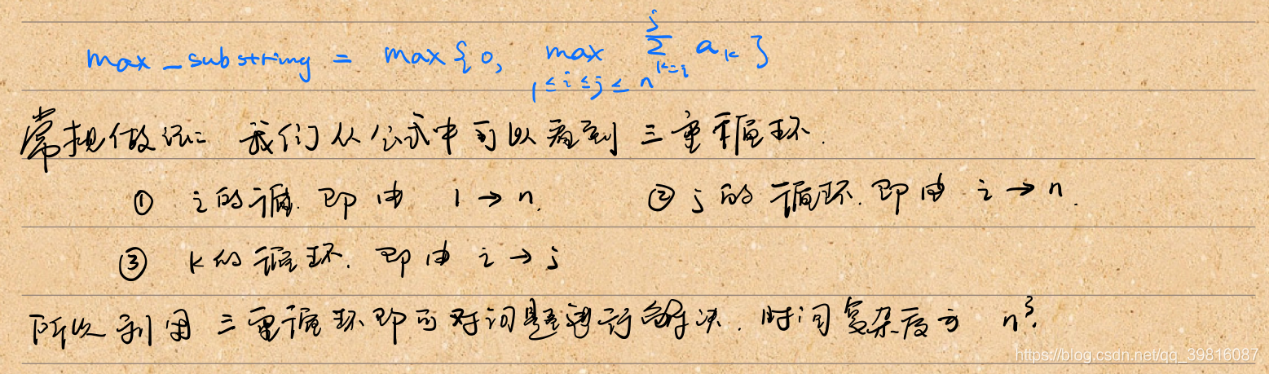 max_substring = max{0, max 1≤i≤j≤n ∑ k=i j aₖ}
常规做法: 我们从公式中可以看到三重循环.
① i的循环. 即由 1→n. ② j的循环. 即由 i→n.
③ k的循环. 即由 i→j
所以利用三重循环即可对问题进行解决. 时间复杂度为 n³.
https://blog.csdn.net/qq_39816087